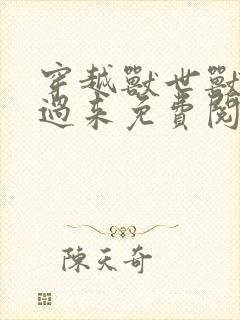 穿越獸世獸
過来免費閱
陳天奇